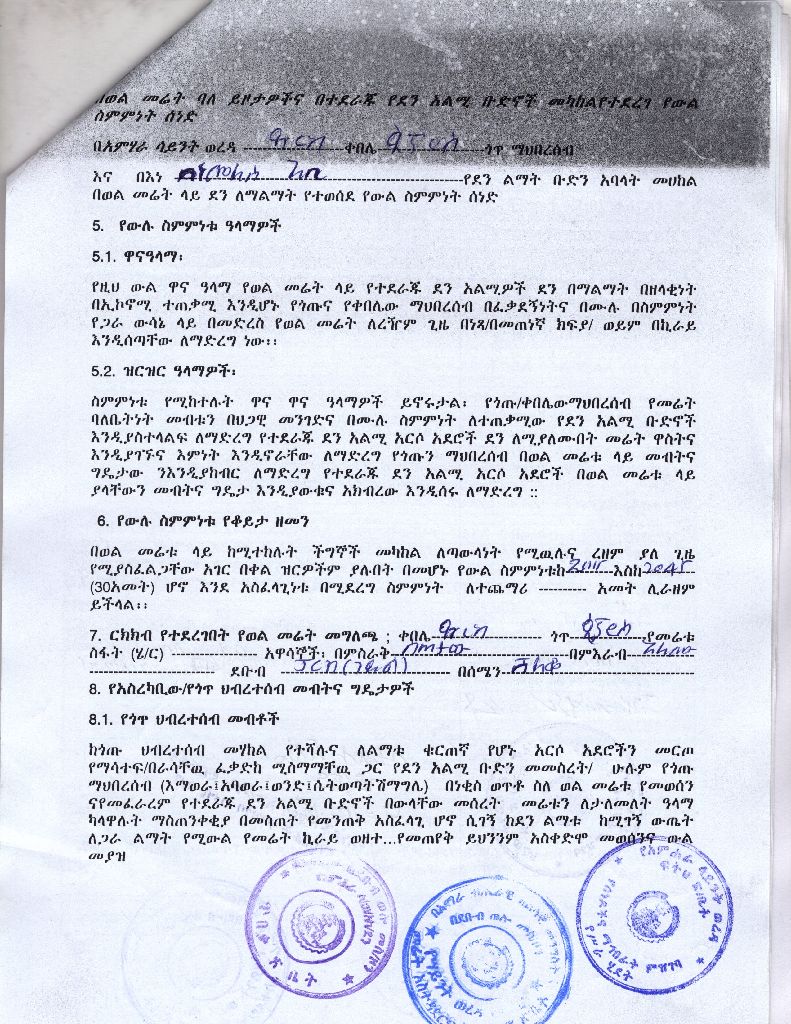 በወል መሬት ባለ ይዞታዎችና በተደራጁ የደን አልሚ ቡድኖች መካከልየተደረገ የውል
ስምምነት ሰነድ
በአምሃራ ሳይንት ወረዳ ---------------ቀበሌ---------------ጎጥ ማህበረሰብ
እና በእነ ---------------የደን ልማት ቡድን አባላት መሀከል
በወል መሬት ላይ ደን ለማልማት የተወሰደ የውል ስምምነት ሰነድ
5. የውሉ ስምምነቱ ዓላማዎች
5.1. ዋናዓላማ፡
የዚህ ውል ዋና ዓላማ የወል መሬት ላይ የተደራጁ ደን አልሚዎች ደን በማልማት በዘላቂነት
በኢኮኖሚ ተጠቃሚ እንዲሆኑ የጎጡና የቀበሌው ማህበረሰብ በፈቃደኝነትና በሙሉ በስምምነት
የጋራ ውሳኔ ላይ በመድረስ የወል መሬት ለረዥም ጊዜ በነጻ/በመጠነኛ ክፍያ/ ወይም በኪራይ
እንዲሰጣቸው ለማድረግ ነው፡፡
5.2. ዝርዝር ዓላማዎች፡
ስምምነቱ የሚከተሉት ዋና ዋና ዓላማዎች ይኖሩታል፡ የጎጡ/ቀበሌውማህበረሰብ የመሬት
ባለቤትነት መብቱን በህጋዊ መንገድና በሙሉ ስምምነት ለተጠቃሚው የደን አልሚ ቡድኖች
እንዲያስተላልፍ ለማድረግ የተደራጁ ደን አልሚ አርሶ አደሮች ደን ለሚያለሙበት መሬት ዋስትና
እንዲያገኙና እምነት እንዲኖራቸው ለማድረግ የጎጡን ማህበረሰብ በወል መሬቱ ላይ መብትና
ግዴታው ንእንዲያከብር ለማድረግ የተደራጁ ደን አልሚ አርሶ አደሮች በወል መሬቱ ላይ
ያላቸውን መብትና ግዴታ እንዲያውቁና አክብረው እንዲሰሩ ለማድረግ ::
6. የውሉ ስምምነቱ የቆይታ ዘመን
በወል መሬቱ ላይ ከሚተከሉት ችግኞች መካከል ለጣውላነት የሚዉሉና ረዘም ያለ ጊዜ
የሚያስፈልጋቸው አገር በቀል ዝርዎችም ያሉበት በመሆኑ የውል ስምምነቱከ-------እስከ-------
(30አመት) ሆኖ እንደ አስፈላጊነቱ በሚደረግ ስምምነት ለተጨማሪ ---------- አመት ሊራዘም
ይችላል፡፡
7. ርክክብ የተደረገበት የወል መሬት መግለጫ ; ቀበሌ--------------- ጎጥ------------የመሬቱ
ስፋት (ሄ/ር) ----------------- አዋሳኞች፡ በምስራቅ---------------በምእራብ---------------
------------------------ ደቡብ --------------- በሰሜን---------------
8. የአስረካቢው/የጎጥ ህብረተሰብ መብትና ግዴታዎች
8.1. የጎጥ ህብረተሰብ መብቶች
ከጎጡ ህብረተሰብ መሃከል የተሻሉና ለልማቱ ቁርጠኛ የሆኑ አርሶ አደሮችን መርጦ
የማሳተፍ/በራሳቸዉ ፈቃድከ ሚስማማቸዉ ጋር የደን አልሚ ቡድን መመስረት/ ሁሉም የጎጡ
ማህበረሰብ (እማወራ፤አባወራ፤ወንድ፤ሴትወጣትሽማግሌ) በነቂስ ወጥቶ ስለ ወል መሬቱ የመወሰን
ናየመፈራረም የተደራጁ ደን አልሚ ቡድኖች በውላቸው መሰረት መሬቱን ለታለመለት ዓላማ
ካላዋሉት ማስጠንቀቂያ በመስጠት የመንጠቅ አስፈላጊ ሆኖ ሲገኝ ከደን ልማቱ ከሚገኝ ውጤት
ለጋራ ልማት የሚውል የመሬት ኪራይ ወዘተ...የመጠየቅ ይህንንም አስቀድሞ መወሰንና ውል
መያዝ